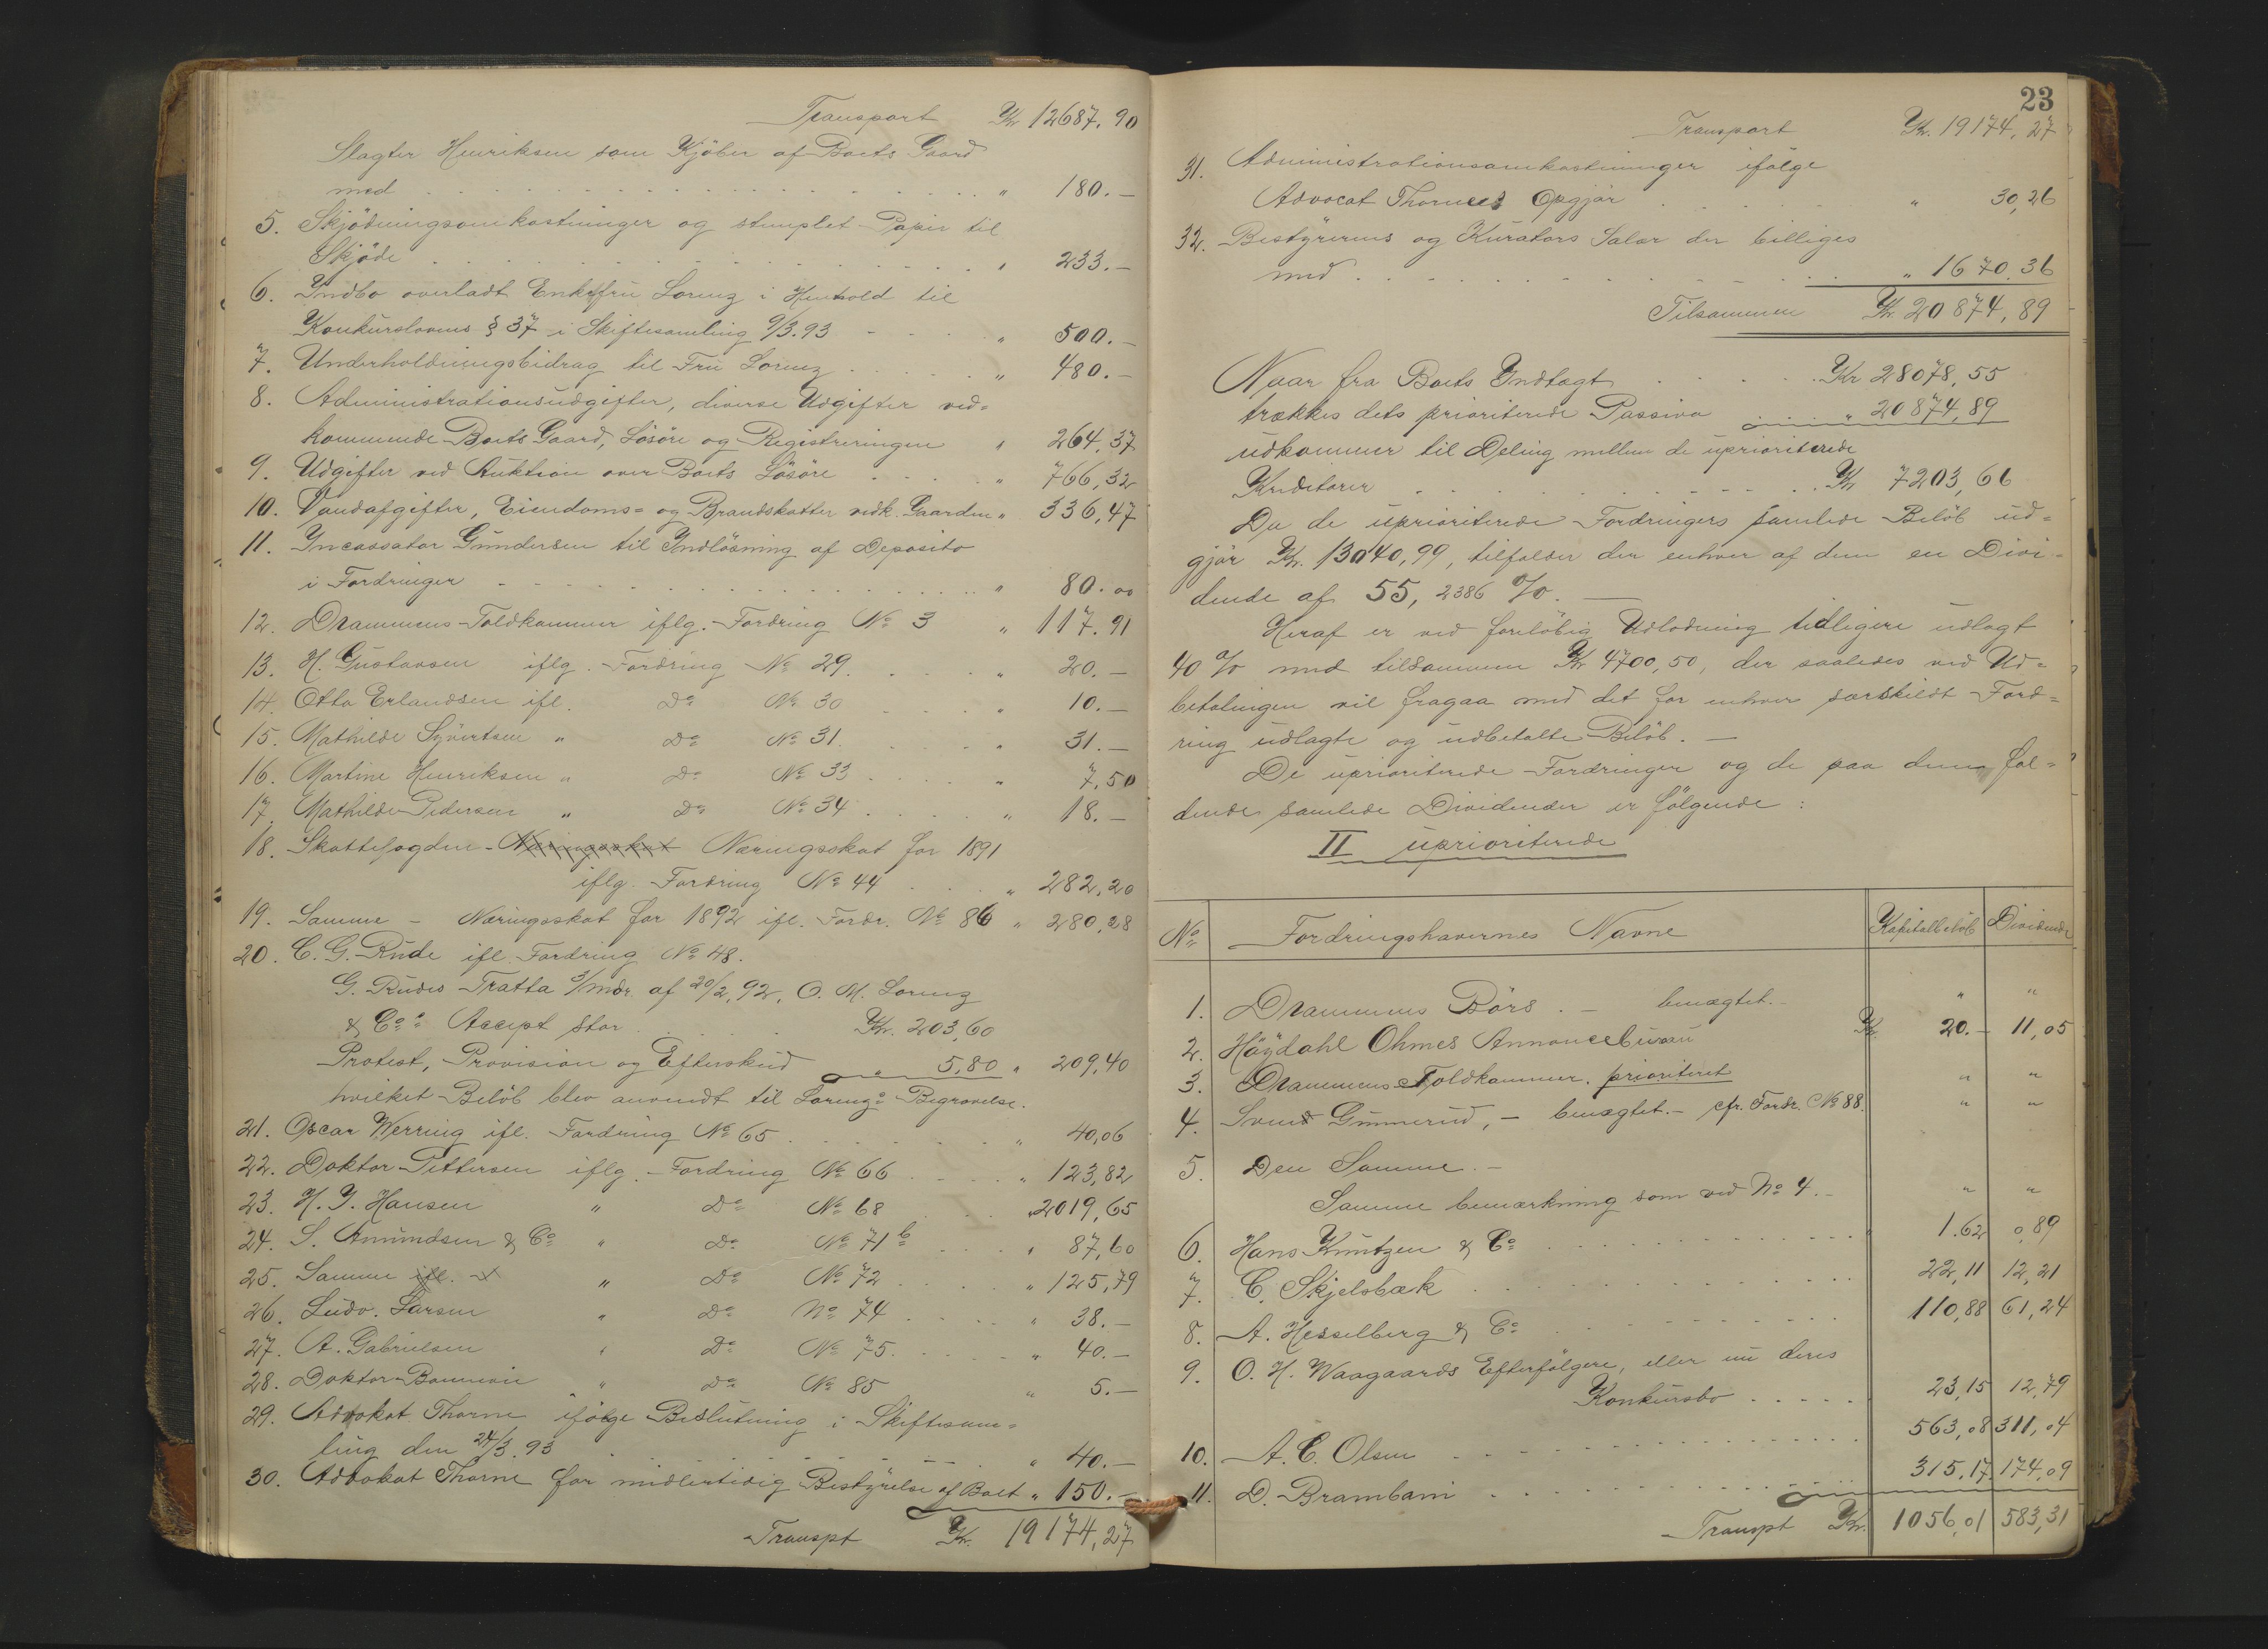 Transport Kr. 12687.90
Slagter Henriksen som Kjöber af Boets Gaard
med . . . " 180.—
5. Skjödningsomkostninger og stemplet Papir til
Skjöde . . . " 233.—
6. Indbo overladt Enkefru Lorenz i Henhold til
Konkurslovens § 37 i Skiftesamling 9/3.93 - - - " 500.—
7. Underholdningsbidrag til Fru Lorenz . . . " 480.—
8. Administrationsudgifter, diverse Udgifter ved=
kommende Boets Gaard, Lösöre og Registreringen " 264,37
9. Udgifter ved Auktion over Boets Lösöre . . . " 766,32
10. Vandafgifter, Eiendoms= og Brandskatter vedk. Gaarden " 336,47
11. Incassator Gundersen til Indlösning af Deposito
i Fordringer - - - . . . " 80.00
12. Drammens Toldkammer iflg. Fordring No 3 " 117.91
13. H. Gustavsen iflg. Fordring No 29. . . . " 20.—
14. Otto Erlandsen ifl. Do No 30 . . . " 10.—
15. Mathilde Syvertsen " Do No 31. . . . " 31.—
16. Martine Henriksen " Do No 33 . . . " 7,50
17. Mathilde Pedersen " Do No 34 . . . " 18.—
18. Skattefogden - Næringsskat Næringsskat for 1891
iflg. Fordring No 44 . . . " 282,20
19. Samme - Næringsskat for 1892 ifl. Fordr. No 86 " 280,28
20. C. G. Rude ifl. Fordring No 48.
G. Rudes Tratta 3/mdr. af 20/2,92, O. M. Lorenz
& Co: Accept stor . . . Kr. 203,60
Protest, Provision og Efterskud " 5,80 " 209,40
hvilket Belöb blev anvendt til Lorenz: Begravelse.
21. Oscar Werring ifl. Fordring No 65 . . . " 40,06
22. Doktor Pettersen iflg. Fordring No 66 . . . " 123,82
23. H. J. Hansen " Do No 68 . . . " 2019,65
24. S. Amundsen & Co " Do No 71 b . . . " 87,60
25. Samme ifl. " Do No 72 . . . " 125,79
26. Ludv. Larsen " Do No 74 . . . " 38.—
27. A. Gabrielsen " Do No 75. . . . " 40.—
28. Doktor " Do No 85 " 5.—
29. Advokat Thorne ifölge Beslutning i Skiftesam=
ling den 24/3.93 . . . " 40.—
30. Advokat Thorne for midlertidig Bestyrelse af Boet " 150.—
Transpt Kr. 19174,27
23
Transport Kr. 19174,27
31. Administrationsomkostninger ifölge
Advocat Thornes Opgjör . . . " 30,26
32. Bestyrerens og Kurators Salær der billiges
med . . . " 1670.36
Tilsammen Kr. 20874,89
Naar fra Boets Indtægt . . . Kr 28078,55
trækkes dets prioriterede Passiva . . . " 20874,89
udkommer til Deling mellem de uprioriterede
Kreditorer . . . Kr 7203,66
Da de uprioriterede Fordringers samlede Belöb ud=
gjör Kr. 13040,99, tilfalder der enhver af dem en Divi=
dende af 55,2386 %. —
Heraf er ved foreløbig Udlodning tidligere udlagt
40 % med tilsammen Kr 4700,50, der saaledes ved Ud=
betalingen vil fragaa med det for enhver særskildt Ford=
ring udlagte og udbetalte Belöb. —
De uprioriterede Fordringer og de paa dem fal=
dende samlede Dividender er fölgende :
II uprioriterede
No Fordringshavernes Navne Kapitalbelöb Dividende
1. Drammens Börs. — benægtet. - " "
2. Höydahl Ohmes Annoncebureau Kr. 20.— 11,05
3. Drammens Toldkammer. prioriteret " "
4. Svend Gunnerud, - benægtet. - cfr. Fordr. No 88. " "
5. Den Samme. -
Samme bemærkning som ved No 4. - " "
6. Hans Knutzen & Co . . . 1.62 0,89
7. C. Skjelsbæk . . . 22,11 12,21
8. A. Hesselberg & Co . . . 110,88 61,24
9. O. H. Waagaards Efterfölgere, eller nu deres
Konkursbo . . . 23,15 12,79
10. A. C. Olsen . . . 563,08 311,04
11. D. Brambani . . . 315,17 174,09
Transpt Kr. 1056,01 583,31